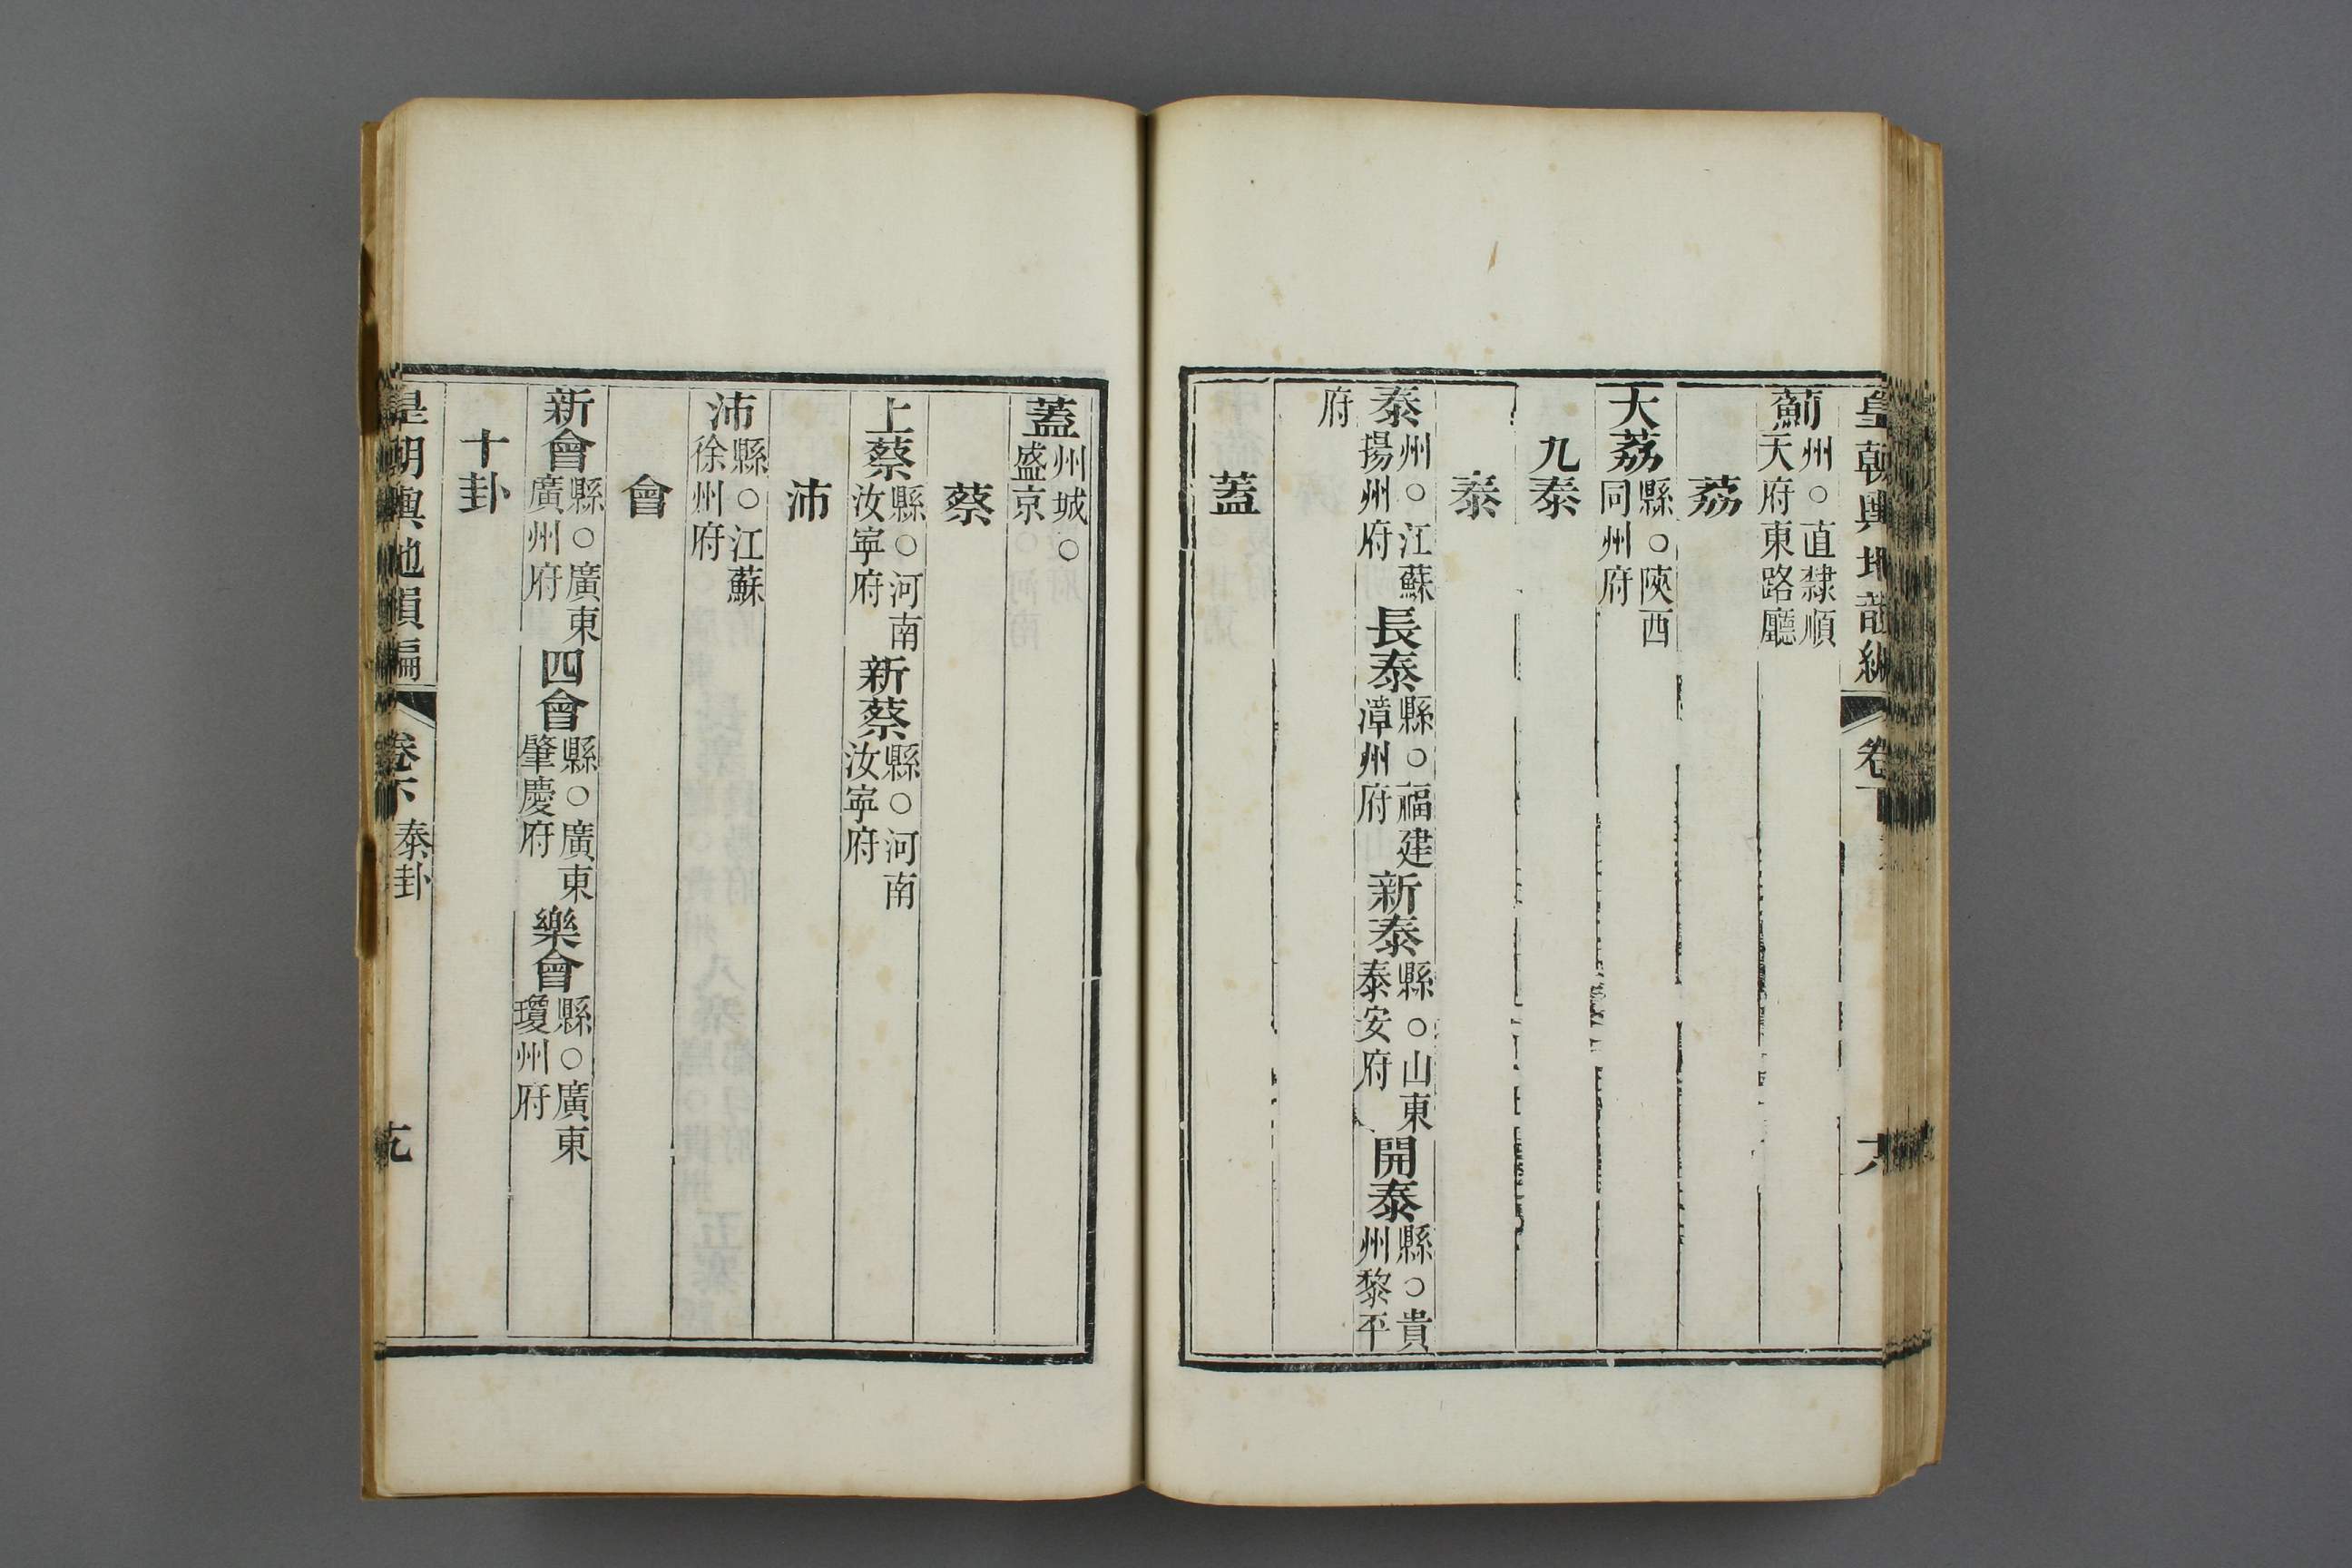 皇朝輿地韻編 卷下
薊州○直隸順天府東路廳
荔
大荔縣○陝西同州府
九泰
泰
泰州○江蘇揚州府 長泰縣○福建漳州府 新泰縣○山東泰安府 開泰縣○貴州黎平
府
蓋
蓋州城○盛京
蔡
上蔡縣○河南汝寧府 新蔡縣○河南汝寧府
沛
沛縣○江蘇徐州府
會
新會縣○廣東廣州府 四會縣○廣東肇慶府 樂會縣○廣東瓊州府
十卦
皇朝輿地韻編 卷下 泰卦